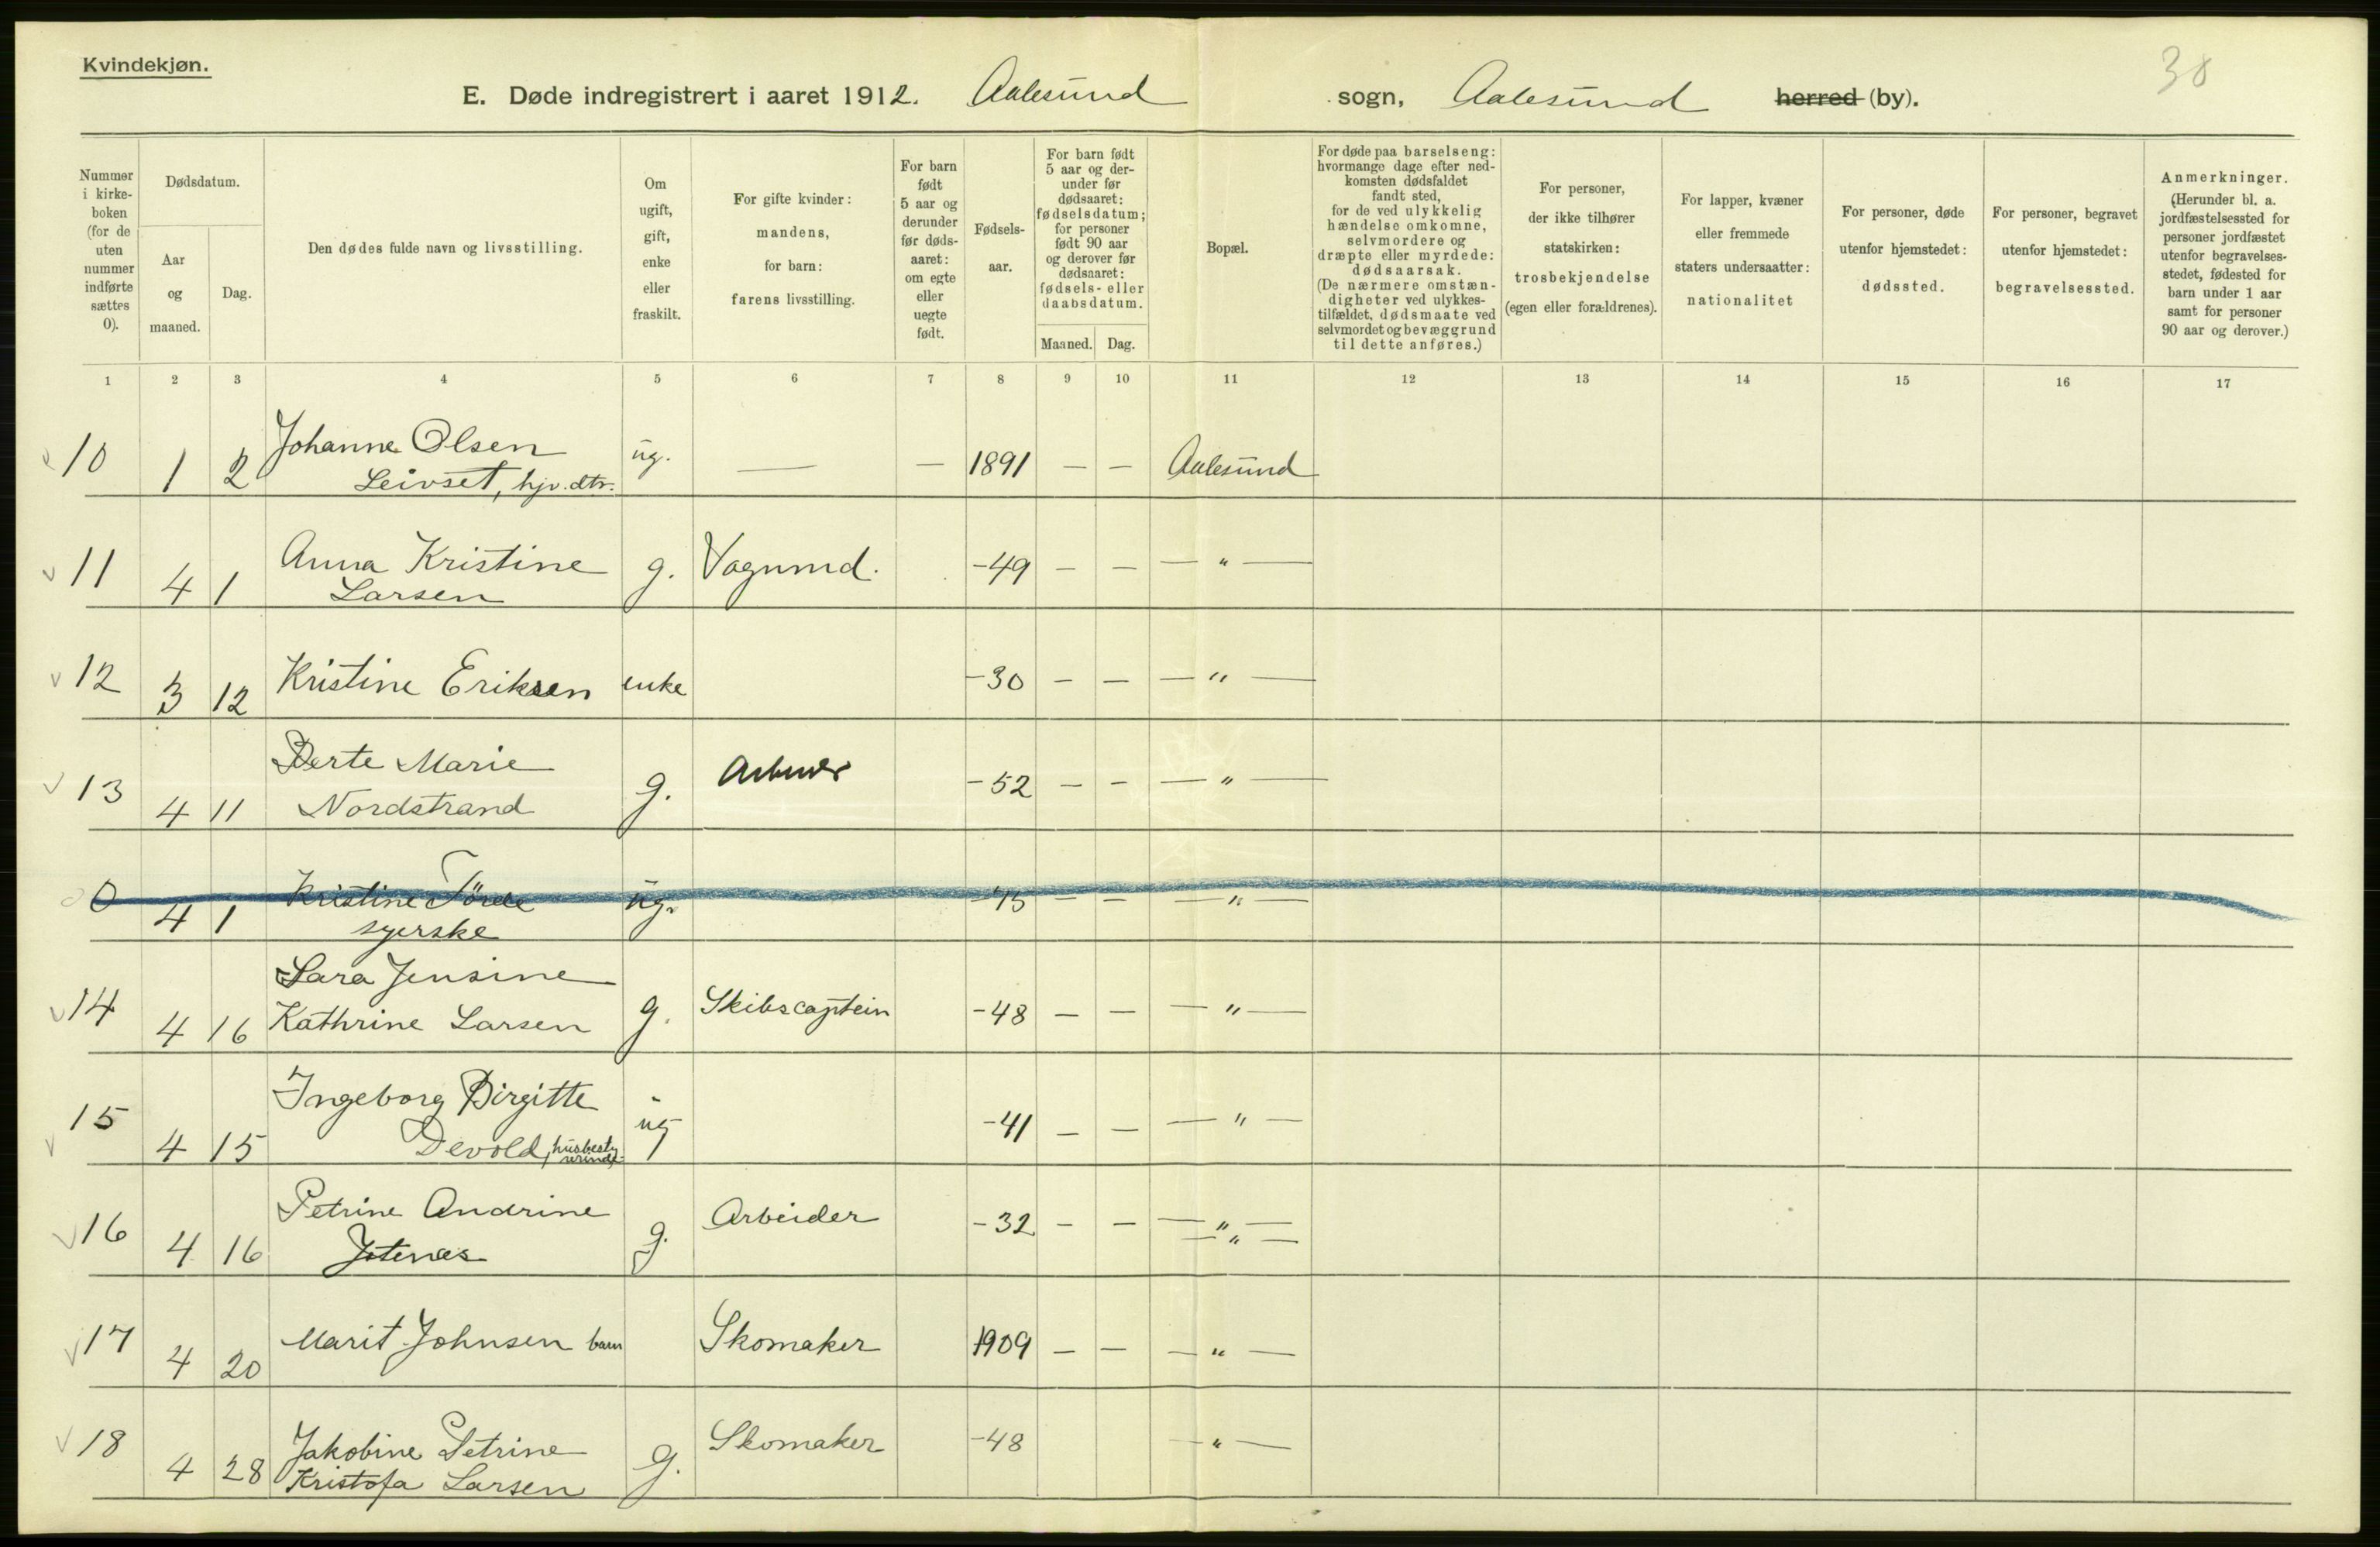 Kvindekjøn.
30
E. Døde indregistrert i aaret 1912. Aalesund sogn, Aalesund herred (by).
Nummer i kirke-boken (for de uten nummer indførte sættes 0).
Dødsdatum.
Aar og maaned.
Dag.
Den dødes fulde navn og livsstilling.
Om ugift, gift, enke eller fraskilt.
For gifte kvinder: mandens, for barn: farens livsstilling.
For barn født 5 aar og derunder før døds-aaret: om egte eller uegte født.
Fødsels-aar.
For barn født 5 aar og der-under før dødsaaret: fødselsdatum; for personer født 90 aar og derover før dødsaaret: fødsels- eller daabsdatum.
Maaned.
Dag.
Bopæl.
For døde paa barselseng: hvormange dage efter ned-komsten dødsfaldet fandt sted, for de ved ulykkelig hændelse omkomne, selvmordere og dræpte eller myrdede: dødsaarsak. (De nærmere omstæn-digheter ved ulykkes-tilfældet, dødsmaate ved selvmordet og bevæggrund til dette anføres.)
For personer, der ikke tilhører statskirken: trosbekjendelse (egen eller forældrenes).
For lapper, kvæner eller fremmede staters undersaatter: nationalitet
For personer, døde utenfor hjemstedet: dødssted.
For personer, begravet utenfor hjemstedet: begravelsessted.
Anmerkninger. (Herunder bl. a. jordfæstelsessted for personer jordfæstet utenfor begravelses-stedet, fødested for barn under 1 aar samt for personer 90 aar og derover.)
1 2 3 4 5 6 7 8 9 10 11 12 13 14 15 16 17
10 1 2 Johanne Olsen ug. — — 1891 — — Aalesund
Leivset, hjv. dtr.
11 4 1 Anna Kristine g. Vognmd. -49 — — — " —
Larsen
12 3 12 Kristine Eriksen enke -30 — — — " —
13 4 11 Berte Marie g. Arbeider -52 — — — " —
Nordstrand
0 4 1 Kristine Förde ug. -45 — — — " —
syerske
14 4 16 Sara Jensine g. Skibscaptein -48 — — — " —
Kathrine Larsen
15 4 15 Ingeborg Birgitte ug -41 — — — " —
Devold, husbesty
16 4 16 Petrine Andrine g. Arbeider -32 — — — " —
— " —
17 4 20 Marit Johnsen barn Skomaker 1909 — — — " —
18 4 28 Jakobine Petrine g. Skomaker -48 — " —
Kristofa Larsen